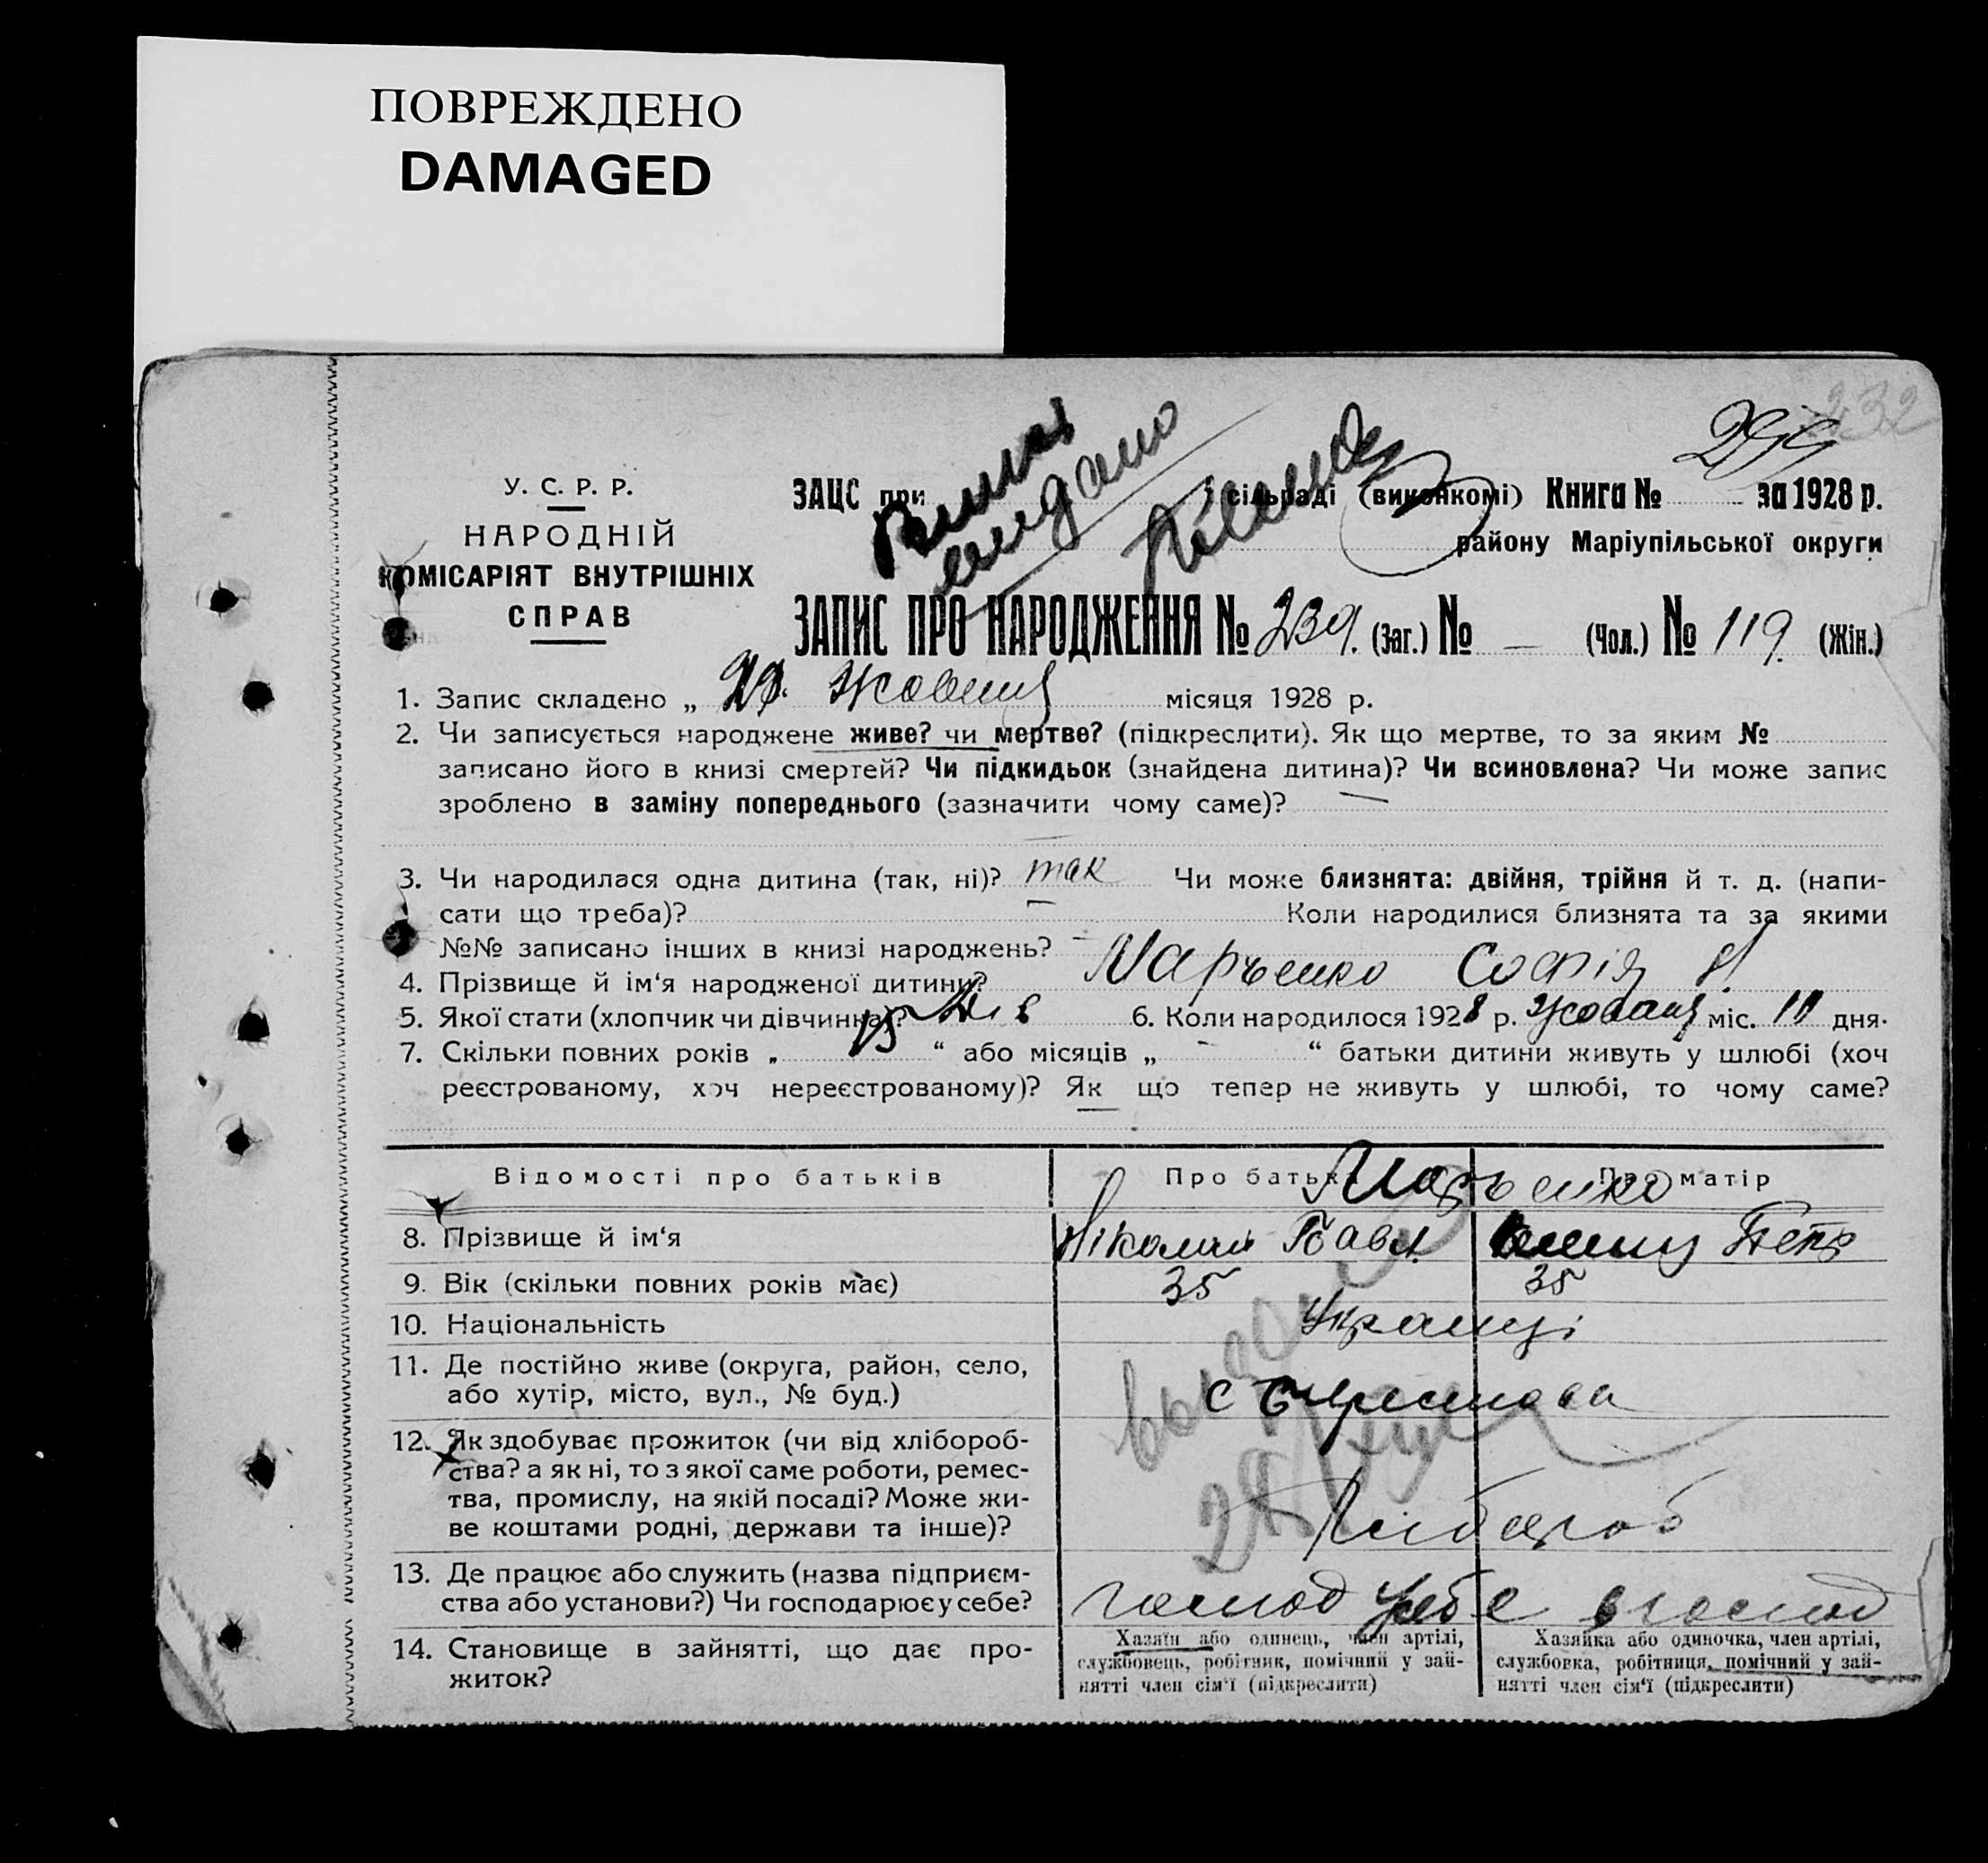 ПОВРЕЖДЕНО
DAMAGED
232
У. С. Р. Р.
НАРОДНІЙ
КОМІСАРІЯТ ВНУТРІШНІХ
СПРАВ
ЗАЦС при сільраді (виконкомі) Книга № за 1928 р.
району Маріупільської округи
ЗАПИС ПРО НАРОДЖЕННЯ № 239. (Заг.) № — (Чол.) № 119. (Жін.)
1. Запис складено „ жовтня місяця 1928 р.
2. Чи записується народжене живе? чи мертве? (підкреслити). Як що мертве, то за яким №
записано його в книзі смертей? Чи підкидьок (знайдена дитина)? Чи всиновлена? Чи може запис
зроблено в заміну попереднього (зазначити чому саме)? —
3. Чи народилася одна дитина (так, ні)? так Чи може близнята: двійня, трійня й т. д. (напи-
сати що треба)? — Коли народилися близнята та за якими
№№ записано інших в книзі народжень? —
4. Прізвище й ім‘я народженої дитини? Марченко Софія
5. Якої стати (хлопчик чи дівчинка)? Дів 6. Коли народилося 1928 р. жовтня міс. 11 дня.
7. Скільки повних років „ 15 “ або місяців „ - “ батьки дитини живуть у шлюбі (хоч
реєстрованому, хоч нереєстрованому)? Як що тепер не живуть у шлюбі, то чому саме?
—
Відомості про батьків Про батька Про матір
Марченко
8. Прізвище й ім‘я Ніколай Павл. Петр
9. Вік (скільки повних років має) 35 35
10. Національність Українці
11. Де постійно живе (округа, район, село,
або хутір, місто, вул., № буд.) с
12. Як здобуває прожиток (чи від хлібороб-
ства? а як ні, то з якої саме роботи, ремес-
тва, промислу, на якій посаді? Може жи-
ве коштами родні, держави та інше)? Хлібороб
13. Де працює або служить (назва підприєм-
ства або установи?) Чи господарює у себе? господ у себе в господ
14. Становище в зайнятті, що дає про-
житок?
Хазяїн або одинець, член артілі,
службовець, робітник, помічний у зай-
нятті член сім‘ї (підкреслити)
Хазяйка або одиночка, член артілі,
службовка, робітниця, помічний у зай-
нятті член сім‘ї (підкреслити)